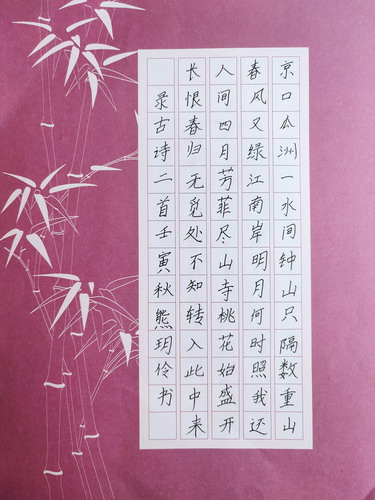 京口瓜洲一水间钟山只隔数重山
春风又绿江南岸明月何时照我还
人间四月芳菲尽山寺桃花始盛开
长恨春归无觅处不知转入此中来
录古诗二首壬寅秋熊玥伶书